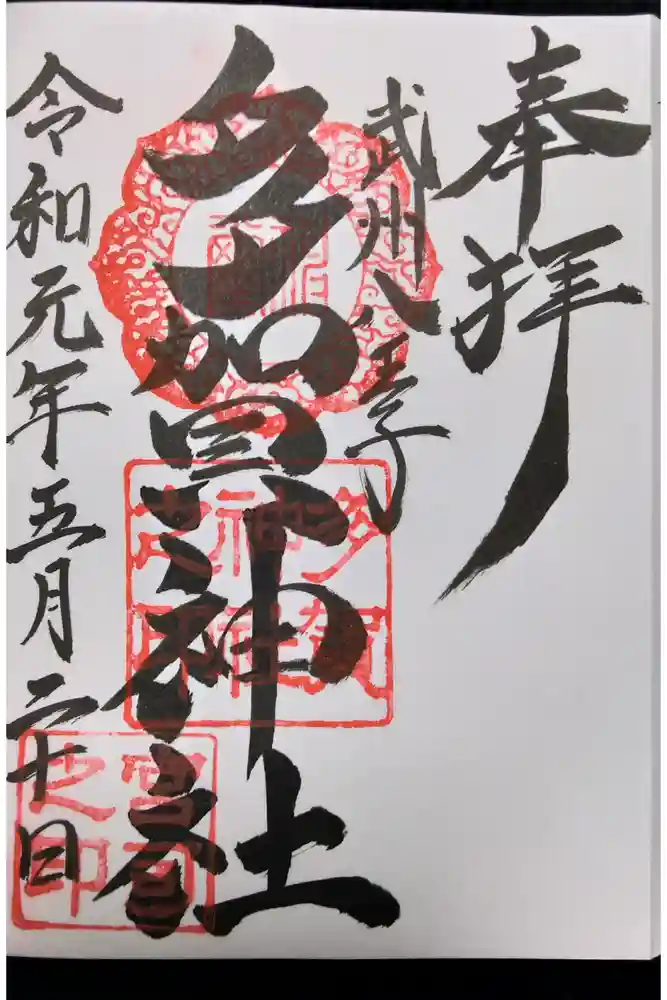 奉拝
武州八王子
多賀神社
令和元年五月二十日
多賀
神社
之印
宮司
之印